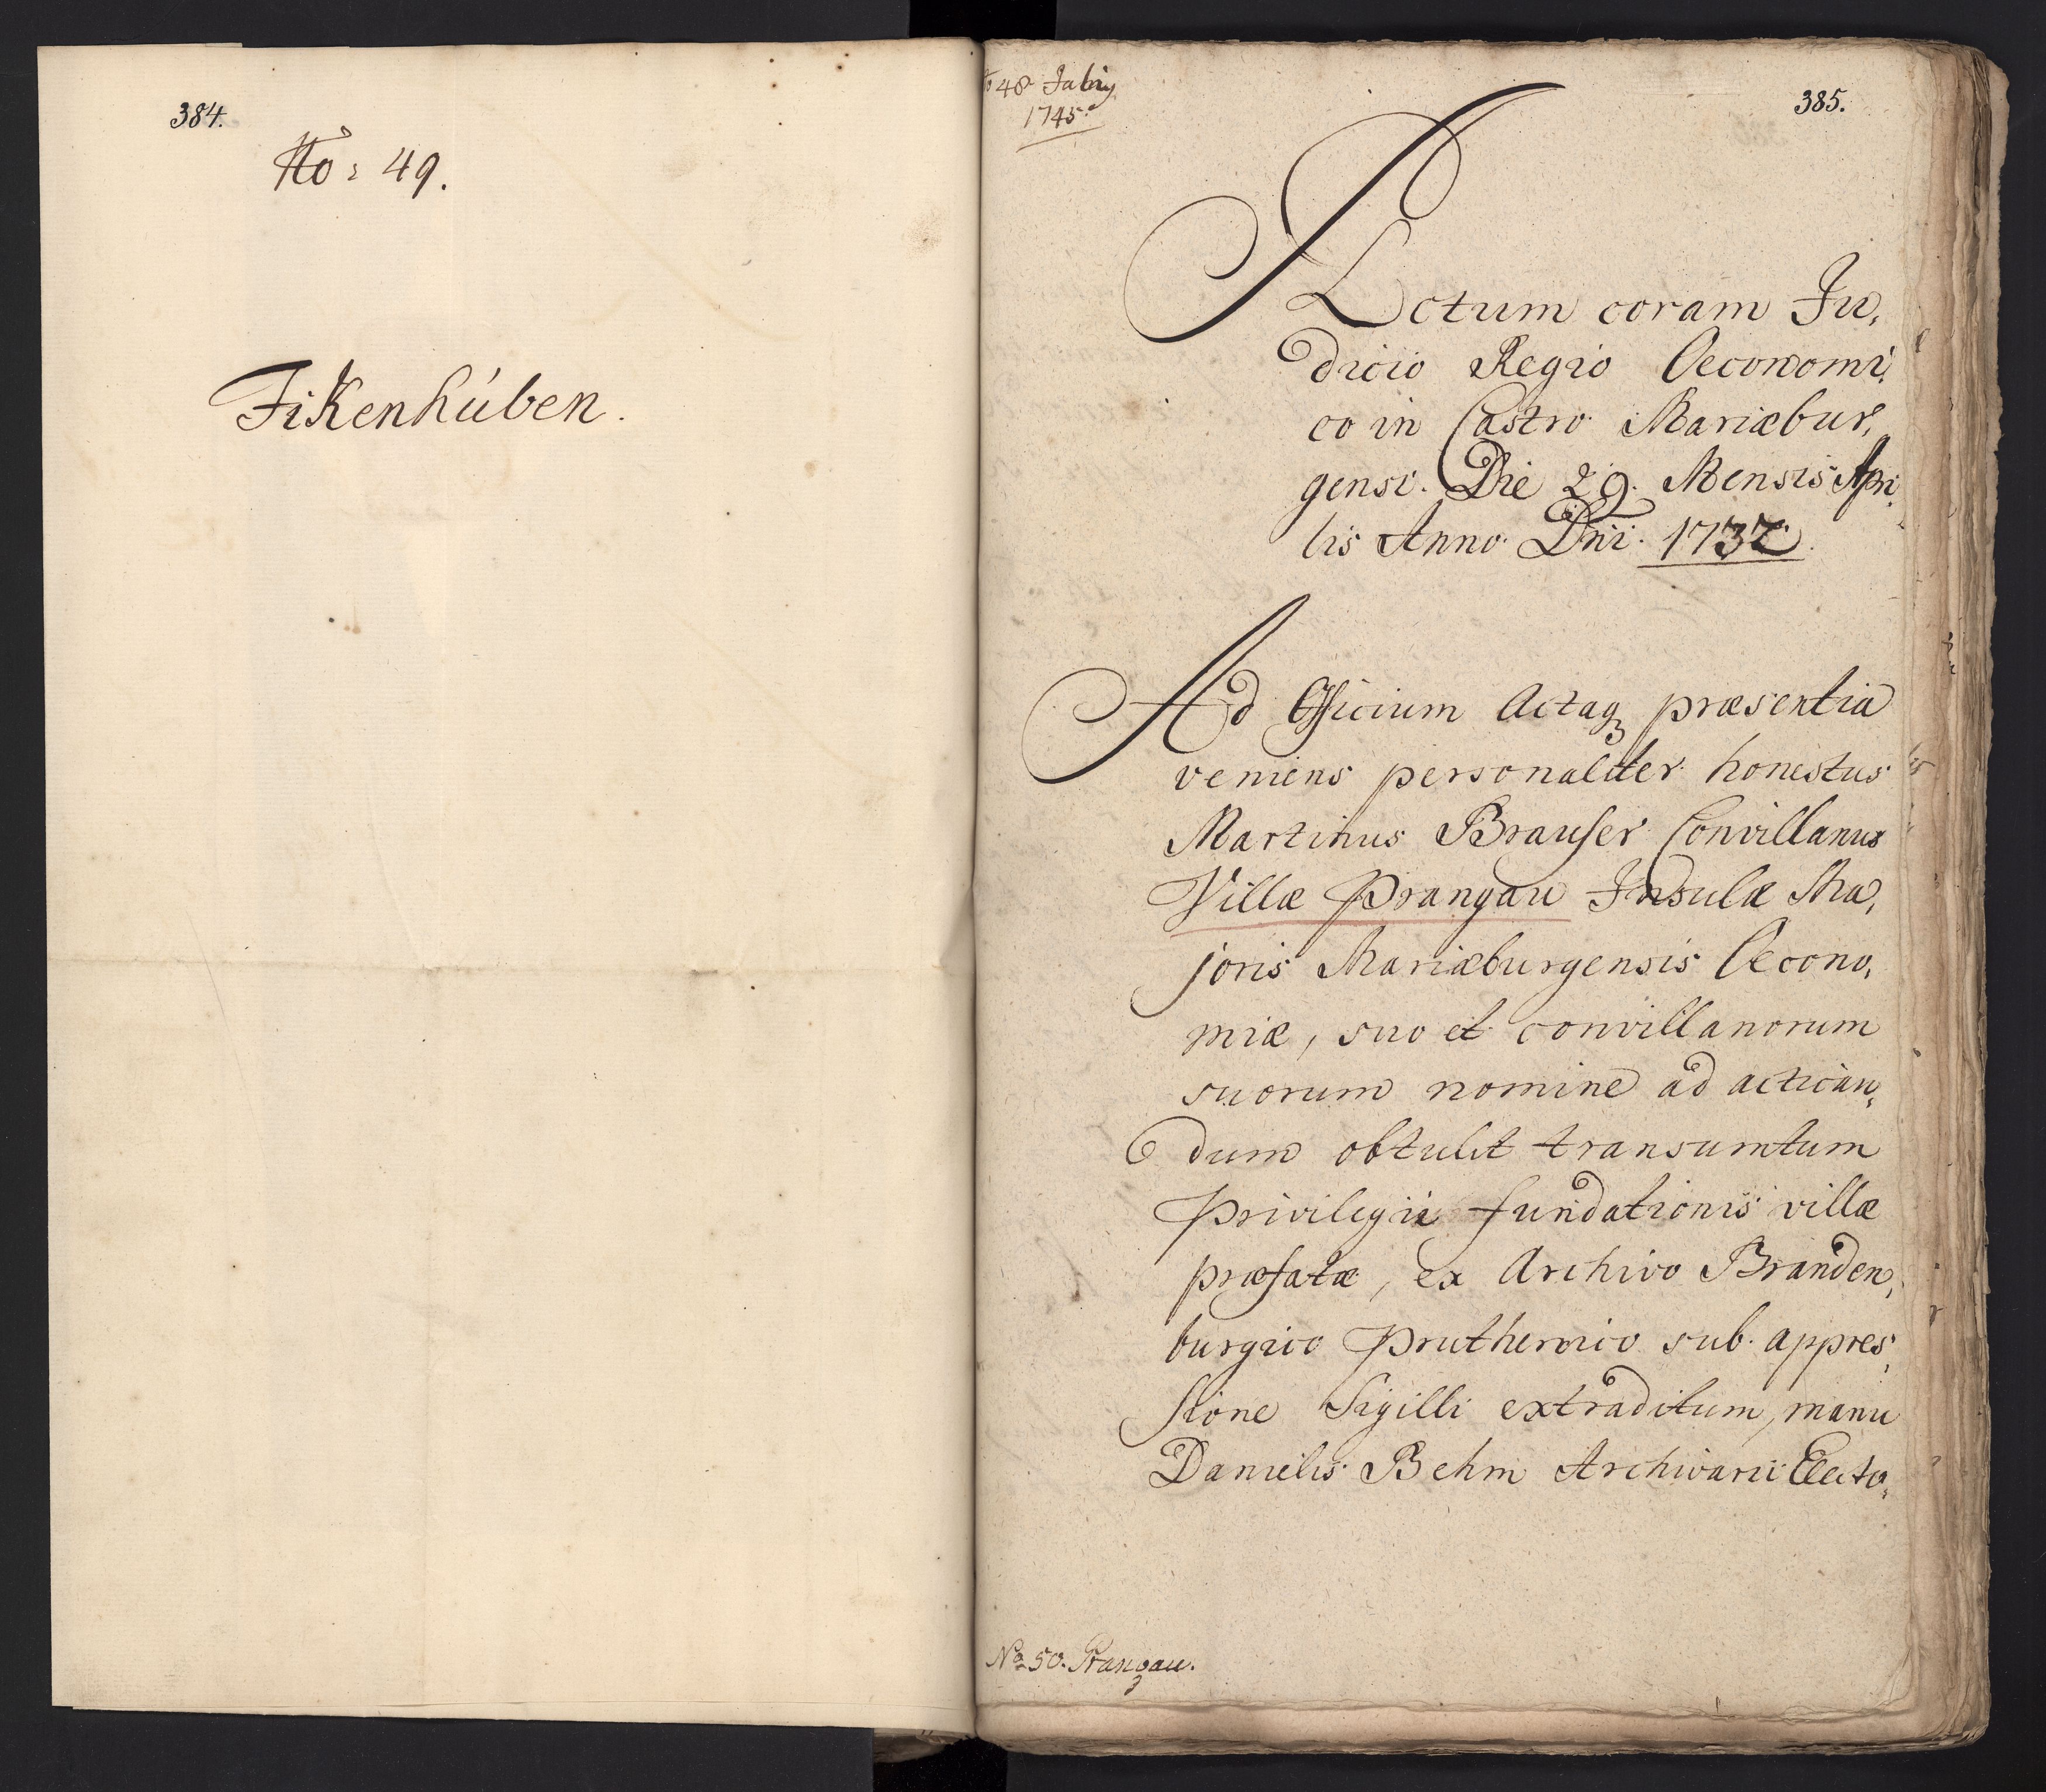 384.
No: 49.
FiKenhúben.
48 
1745.
385.
Actum coram Ju,
dicio Regio Oeconomi,
co in Castro Mariæbur,
gensi. Die 29. Mensis Apri,
lis Anno Dni. 1737.
Ad Officium Actaq præsentia
veniens personaliter honestus
Martinus Brauser Convillanus
Villæ Prangau Insulæ Ma,
joris Mariæburgensis Oecono,
miæ, suo et convillanorum
suorum nomine ad actican,
dum obtulit transumtum
Privilegii fundationis villæ
præfatæ, ex Archivo Branden,
burgico Pruthenico sub appres,
sione Sigilli extraditum, manu
Danielis Behm Archivarii Electo,
No 50. Prangau.